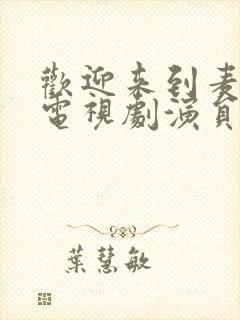 歡迎来到麦
電視劇演員
葉慧敏